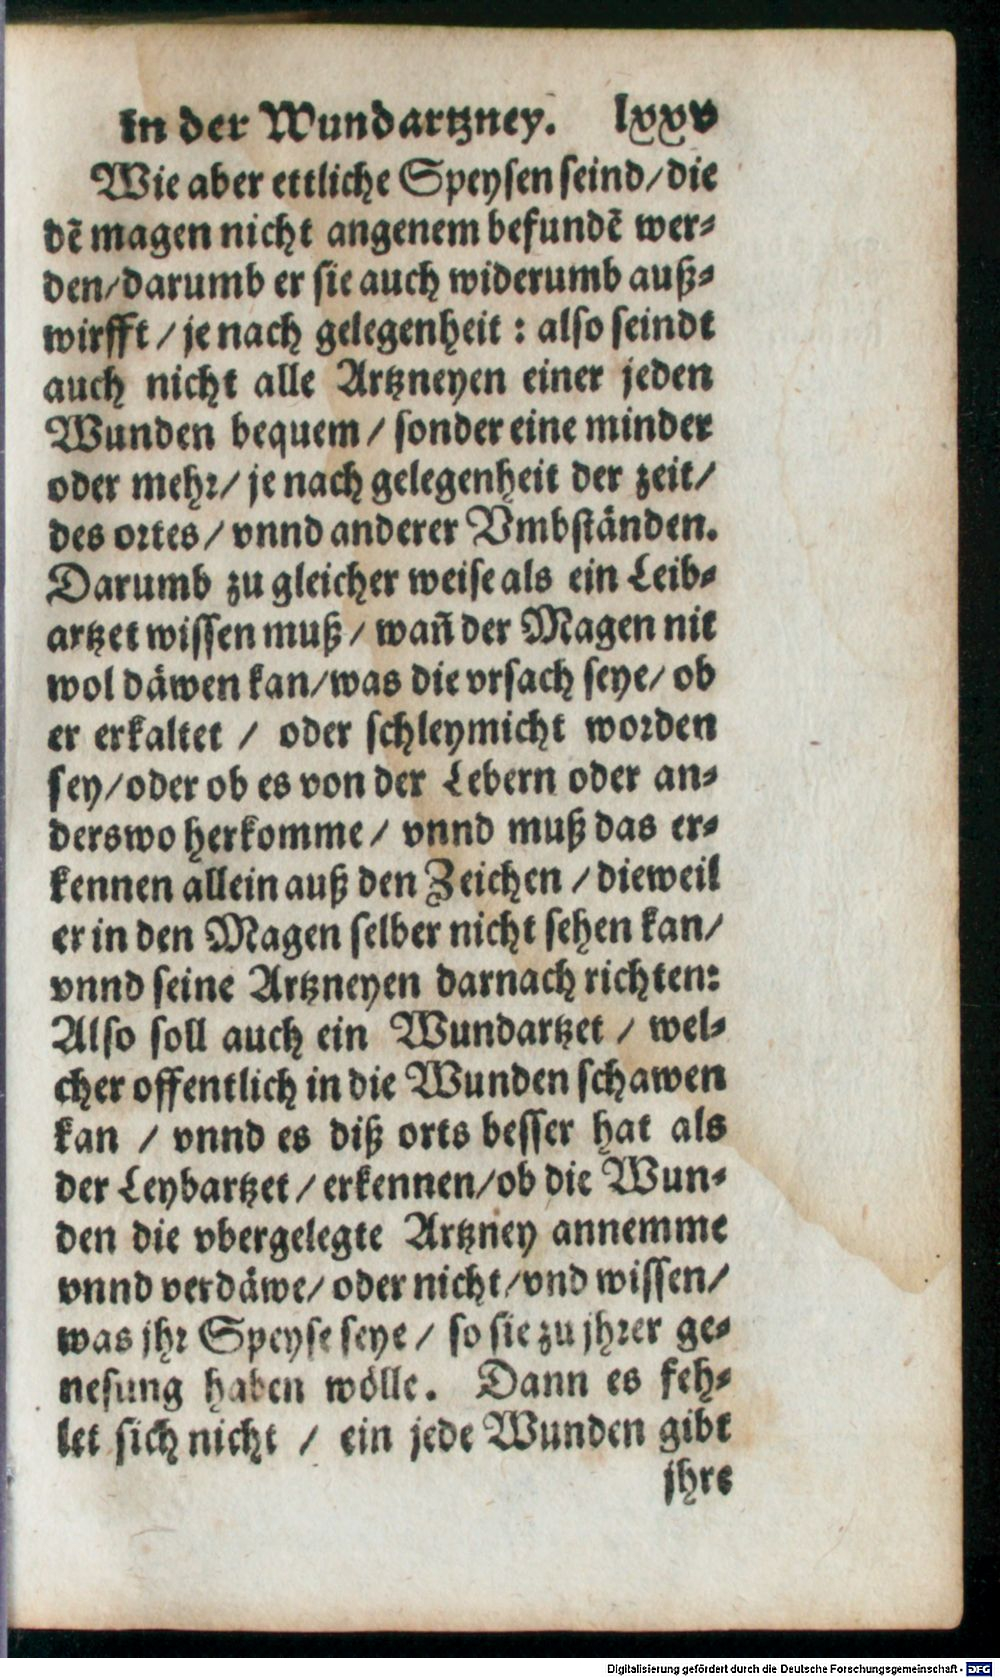 in der Wundartzney. lxxv
Wie aber ettliche Speysen seind/die
dẽ magen nicht angenem befundẽ wer⸗
den/darumb er sie auch widerumb auß⸗
wirfft / je nach gelegenheit : also seindt
auch nicht alle Artzneyen einer jeden
Wunden bequem / sonder eine minder
oder mehr/ je nach gelegenheit der zeit/
des ortes / vnnd anderer Vmbständen.
Darumb zu gleicher weise als ein Leib⸗
artzet wissen muß / wañ der Magen nit
wol däwen kan/was die vrsach seye/ ob
er erkaltet / oder schleymicht worden
sey/oder ob es von der Lebern oder an⸗
derswo herkomme/ vnnd muß das er⸗
kennen allein auß den Zeichen / dieweil
er in den Magen selber nicht sehen kan/
vnnd seine Artzneyen darnach richten:
Also soll auch ein Wundartzet / wel⸗
cher offentlich in die Wunden schawen
kan / vnnd es diß orts besser hat als
der Leybartzet / erkennen/ob die Wun⸗
den die vbergelegte Artzney annemme
vnnd verdäwe/ oder nicht/vnd wissen/
was jhr Speyse seye / so sie zu jhrer ge⸗
nesung haben wölle. Dann es feh⸗
let sich nicht / ein jede Wunden gibt
jhre
Digitalisierung gefördert durch die Deutsche Forschungsgemeinschaft - DFG